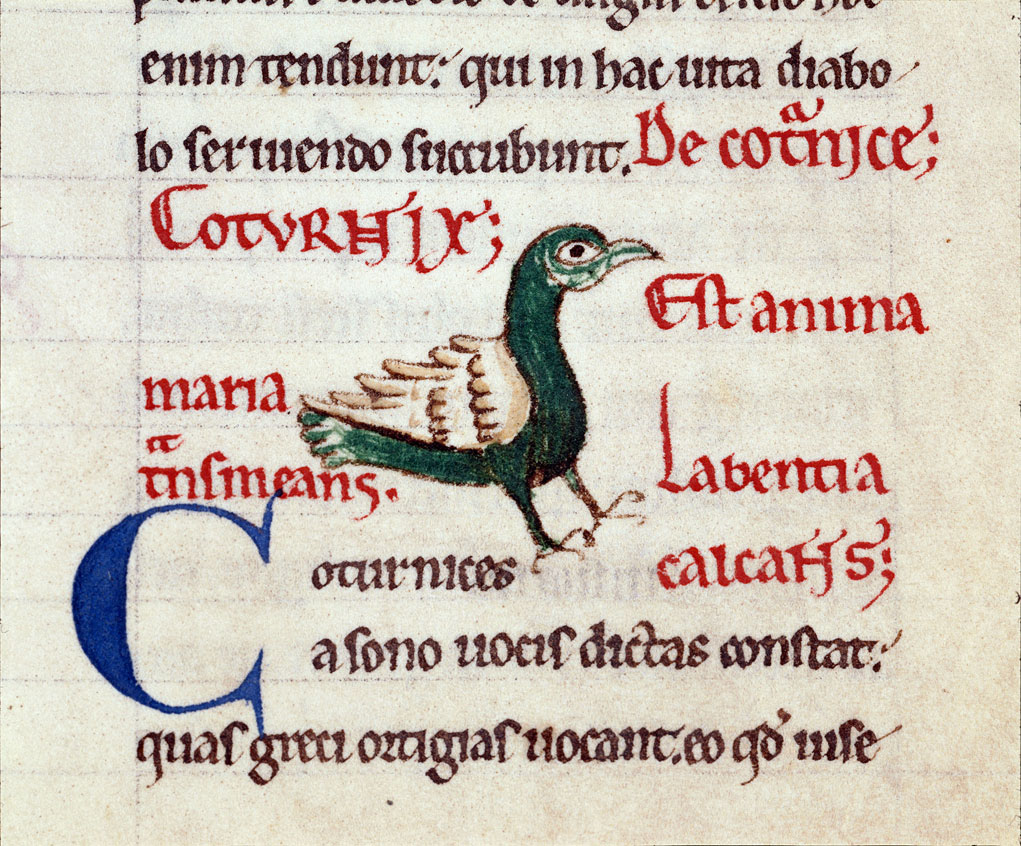 enim tendunt: qui in hac uita diabo
lo seruiendo succubunt. De cotᵃnice;
Coturnix;
Est anima
maria
tᵃnsmeans.
Labentia
calcans;
Coturnices
a sono uocis dictas constat:
quas greci ortigias uocant. eo qd' uise